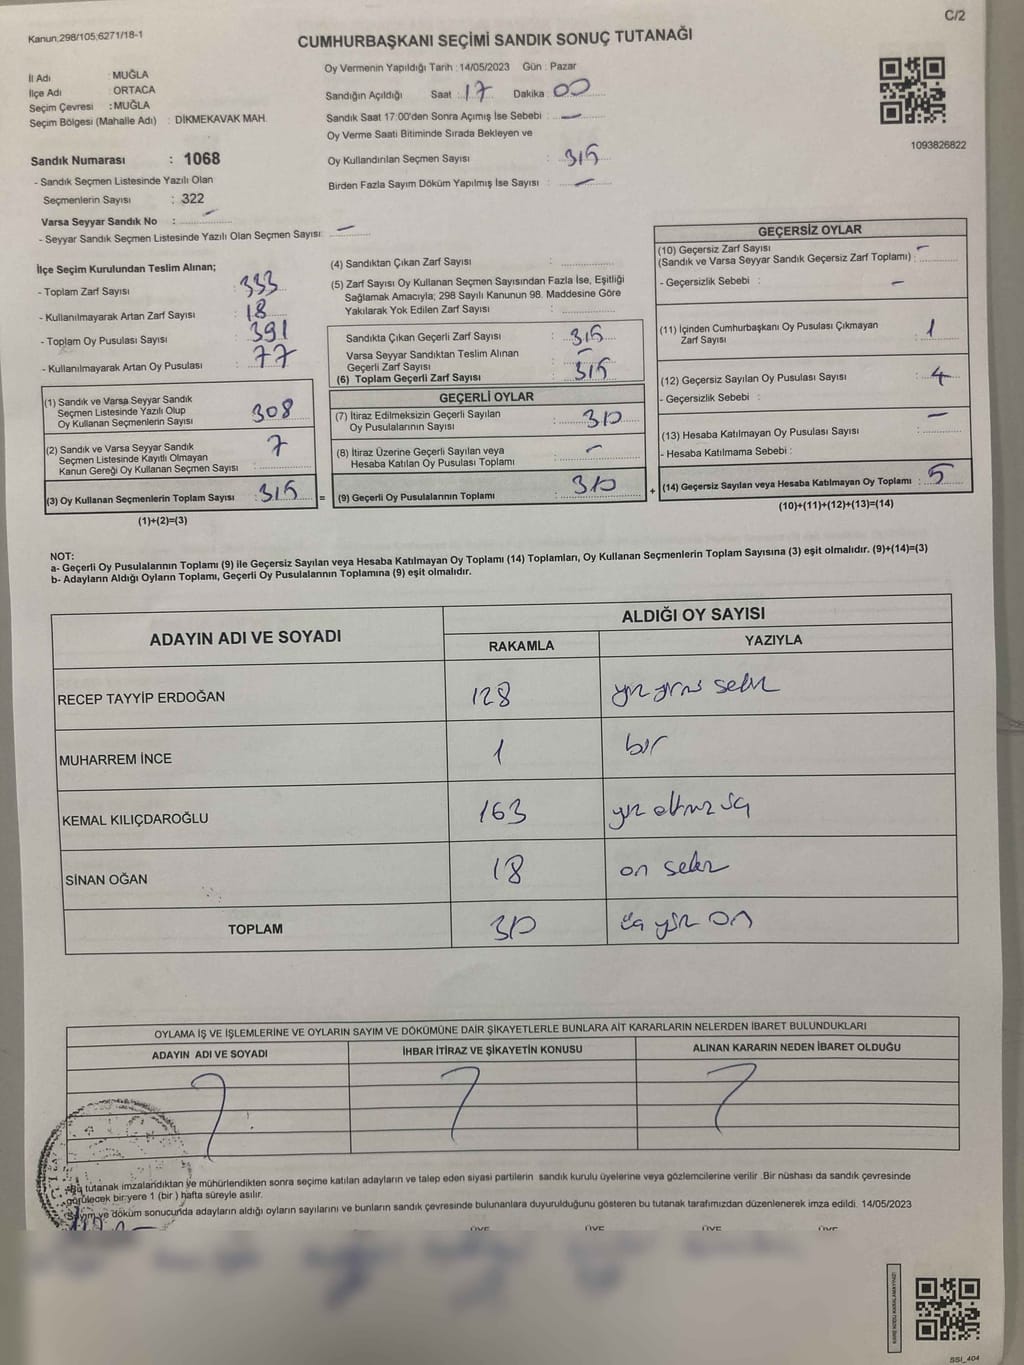 C/2
Kanun,298/105;6271/18-1
CUMHURBAŞKANI SEÇİMİ SANDIK SONUÇ TUTANAĞI
İl Adı : MUĞLA
İlçe Adı : ORTACA
Seçim Çevresi : MUĞLA
Seçim Bölgesi (Mahalle Adı) : DİKMEKAVAK MAH.
Oy Vermenin Yapıldığı Tarih : 14/05/2023 Gün : Pazar
Sandığın Açıldığı Saat : 17 Dakika : 00
Sandık Saat 17:00'den Sonra Açılmış İse Sebebi : —
Oy Verme Saati Bitiminde Sırada Bekleyen ve
Oy Kullandırılan Seçmen Sayısı : 315
Birden Fazla Sayım Döküm Yapılmış İse Sayısı : —
1093826822
Sandık Numarası : 1068
- Sandık Seçmen Listesinde Yazılı Olan
Seçmenlerin Sayısı : 322
Varsa Seyyar Sandık No : —
- Seyyar Sandık Seçmen Listesinde Yazılı Olan Seçmen Sayısı : —
İlçe Seçim Kurulundan Teslim Alınan;
- Toplam Zarf Sayısı : 333
- Kullanılmayarak Artan Zarf Sayısı : 18
- Toplam Oy Pusulası Sayısı : 391
- Kullanılmayarak Artan Oy Pusulası : 77
(1) Sandık ve Varsa Seyyar Sandık
Seçmen Listesinde Yazılı Olup
Oy Kullanan Seçmenlerin Sayısı : 308
(2) Sandık ve Varsa Seyyar Sandık
Seçmen Listesinde Kayıtlı Olmayan
Kanun Gereği Oy Kullanan Seçmen Sayısı : 7
(3) Oy Kullanan Seçmenlerin Toplam Sayısı : 315
(1)+(2)=(3)
=
(4) Sandıktan Çıkan Zarf Sayısı :
(5) Zarf Sayısı Oy Kullanan Seçmen Sayısından Fazla İse, Eşitliği
Sağlamak Amacıyla; 298 Sayılı Kanunun 98. Maddesine Göre
Yakılarak Yok Edilen Zarf Sayısı :
Sandıkta Çıkan Geçerli Zarf Sayısı : 315
Varsa Seyyar Sandıktan Teslim Alınan
Geçerli Zarf Sayısı : —
(6) Toplam Geçerli Zarf Sayısı : 315
GEÇERLİ OYLAR
(7) İtiraz Edilmeksizin Geçerli Sayılan
Oy Pusulalarının Sayısı : 310
(8) İtiraz Üzerine Geçerli Sayılan veya
Hesaba Katılan Oy Pusulası Toplamı : —
(9) Geçerli Oy Pusulalarının Toplamı : 310
+
GEÇERSİZ OYLAR
(10) Geçersiz Zarf Sayısı
(Sandık ve Varsa Seyyar Sandık Geçersiz Zarf Toplamı) : —
- Geçersizlik Sebebi : —
(11) İçinden Cumhurbaşkanı Oy Pusulası Çıkmayan
Zarf Sayısı : 1
(12) Geçersiz Sayılan Oy Pusulası Sayısı : 4
- Geçersizlik Sebebi :
(13) Hesaba Katılmayan Oy Pusulası Sayısı : —
- Hesaba Katılmama Sebebi :
(14) Geçersiz Sayılan veya Hesaba Katılmayan Oy Toplamı : 5
(10)+(11)+(12)+(13)=(14)
NOT:
a- Geçerli Oy Pusulalarının Toplamı (9) ile Geçersiz Sayılan veya Hesaba Katılmayan Oy Toplamı (14) Toplamları, Oy Kullanan Seçmenlerin Toplam Sayısına (3) eşit olmalıdır. (9)+(14)=(3)
b- Adayların Aldığı Oyların Toplamı, Geçerli Oy Pusulalarının Toplamına (9) eşit olmalıdır.
ADAYIN ADI VE SOYADI ALDIĞI OY SAYISI
RAKAMLA YAZIYLA
RECEP TAYYİP ERDOĞAN 128 yüz yirmi sekiz
MUHARREM İNCE 1 bir
KEMAL KILIÇDAROĞLU 163 yüz altmış üç
SİNAN OĞAN 18 on sekiz
TOPLAM 310 üç yüz on
OYLAMA İŞ VE İŞLEMLERİNE VE OYLARIN SAYIM VE DÖKÜMÜNE DAİR ŞİKAYETLERLE BUNLARA AİT KARARLARIN NELERDEN İBARET BULUNDUKLARI
ADAYIN ADI VE SOYADI İHBAR İTİRAZ VE ŞİKAYETİN KONUSU ALINAN KARARIN NEDEN İBARET OLDUĞU
Bu tutanak imzalandıktan ve mühürlendikten sonra seçime katılan adayların ve talep eden siyasi partilerin sandık kurulu üyelerine veya gözlemcilerine verilir .Bir nüshası da sandık çevresinde
görülecek bir yere 1 (bir ) hafta süreyle asılır.
Sayım ve döküm sonucunda adayların aldığı oyların sayılarını ve bunların sandık çevresinde bulunanlara duyurulduğunu gösteren bu tutanak tarafımızdan düzenlenerek imza edildi. 14/05/2023
ÜYE ÜYE ÜYE ÜYE
SSI_404